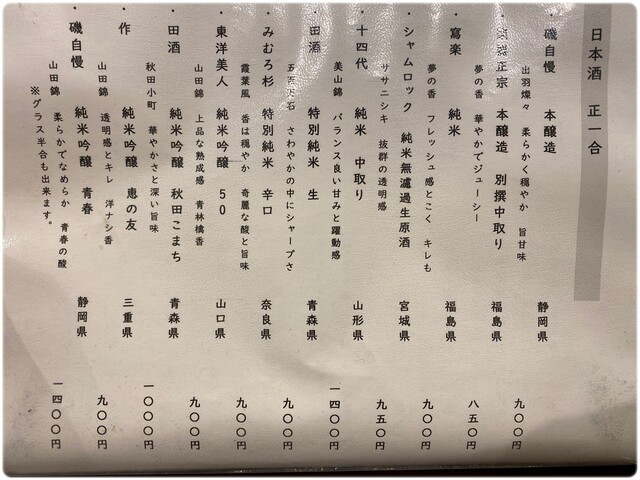 日本酒 正一合
・磯自慢 本醸造 静岡県 九〇〇円
出羽燦々 柔らかく穏やか 旨甘味
正宗 本醸造 別撰中取り 福島県 八五〇円
夢の香 華やかでジューシー
・寫楽 純米 福島県 九〇〇円
夢の香 フレッシュ感とこく キレも
・シャムロック 純米無濾過生原酒 宮城県 九五〇円
ササニシキ 抜群の透明感
・十四代 純米 中取り 山形県 一四〇〇円
美山錦 バランス良い甘みと躍動感
・田酒 特別純米 生 青森県 九〇〇円
さわやかの中にシャープさ
・みむろ杉 特別純米 辛口 奈良県 九〇〇円
霞葉風 香は穏やか 奇麗な酸と旨味
・東洋美人 純米吟醸 50 山口県 九〇〇円
山田錦 上品な熟成感 青林檎香
・田酒 純米吟醸 秋田こまち 青森県 一〇〇〇円
秋田小町 華やかさと深い旨味
・作 純米吟醸 恵の友 三重県 九〇〇円
山田錦 透明感とキレ 洋ナシ香
・磯自慢 純米吟醸 青春 静岡県 一四〇〇円
山田錦 柔らかでなめらか 青春の酸
※グラス半合も出来ます。